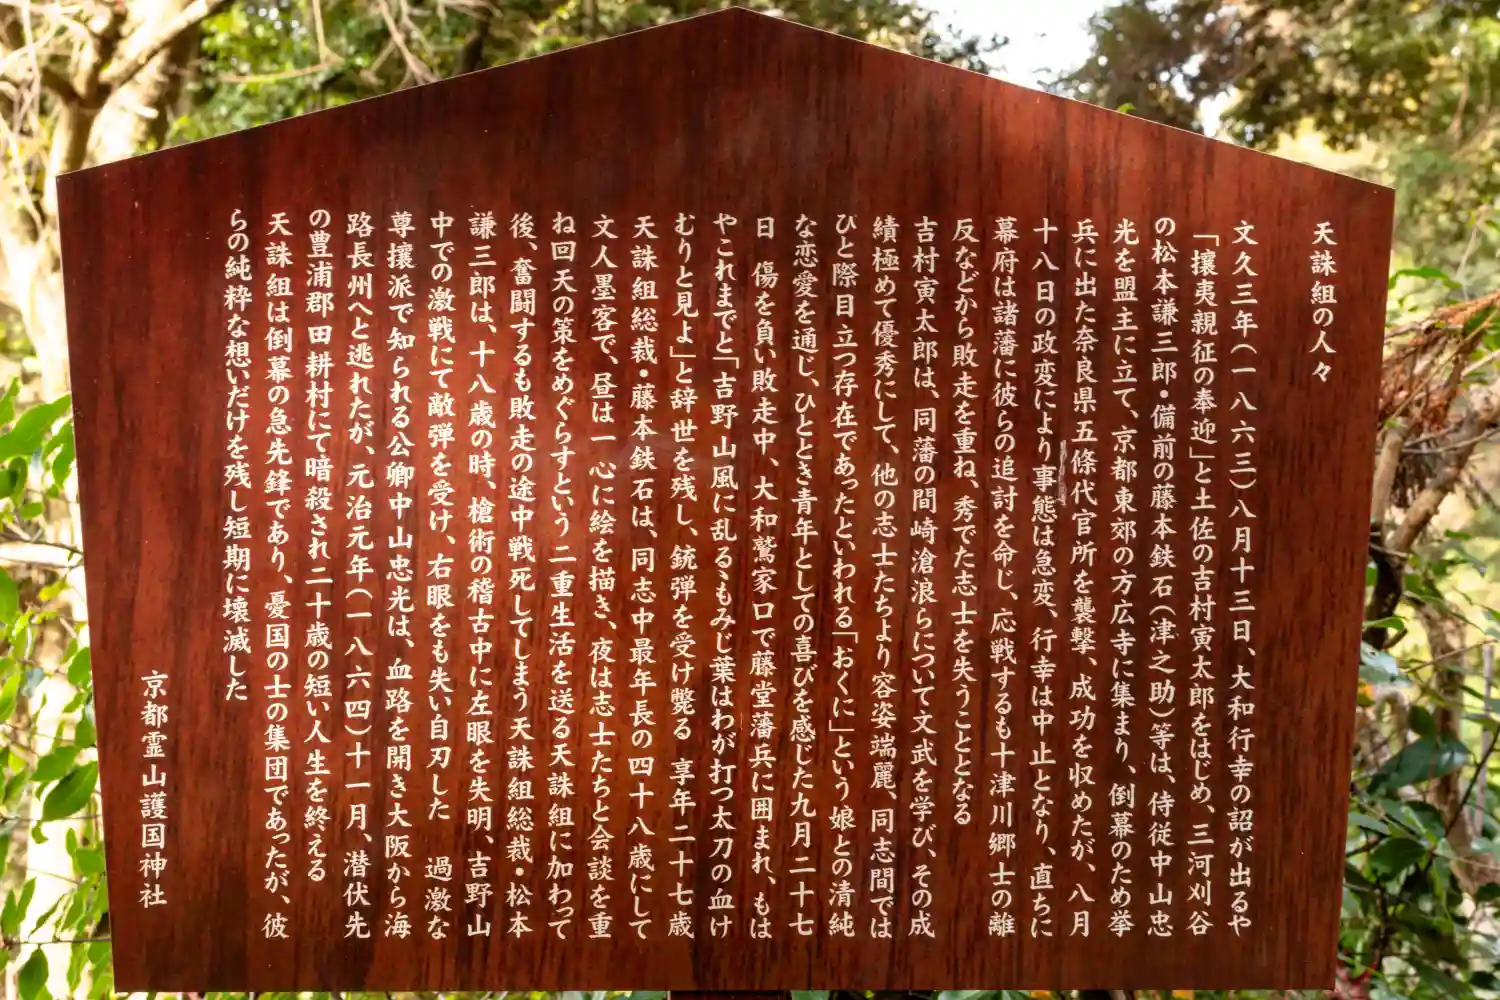 天誅組の人々
文久三年(一八六三)八月十三日、大和行幸の詔が出るや
「攘夷親征の奉迎」と土佐の吉村寅太郎をはじめ、三河刈谷
の松本謙三郎・備前の藤本鉄石(津之助)等は、侍従中山忠
光を盟主に立て、京都東郊の方広寺に集まり、倒幕のため挙
兵に出た奈良県五條代官所を襲撃、成功を収めたが、八月
十八日の政変により事態は急変、行幸は中止となり、直ちに
幕府は諸藩に彼らの追討を命じ、応戦するも十津川郷士の離
反などから敗走を重ね、秀でた志士を失うこととなる
吉村寅太郎は、同藩の間崎滄浪らについて文武を学び、その成
績極めて優秀にして、他の志士たちより容姿端麗、同志間では
ひと際目立つ存在であったといわれる「おくに」という娘との清純
な恋愛を通じ、ひととき青年としての喜びを感じた九月二十七
日 傷を負い敗走中、大和鷲家口で藤堂藩兵に囲まれ、もは
やこれまでと「吉野山風に乱るゝもみじ葉はわが打つ太刀の血け
むりと見よ」と辞世を残し、銃弾を受け斃る 享年二十七歳
天誅組総裁・藤本鉄石は、同志中最年長の四十八歳にして
文人墨客で、昼は一心に絵を描き、夜は志士たちと会談を重
ね回天の策をめぐらすという二重生活を送る天誅組に加わって
後、奮闘するも敗走の途中戦死してしまう天誅組総裁・松本
謙三郎は、十八歳の時、槍術の稽古中に左眼を失明、吉野山
中での激戦にて敵弾を受け、右眼をも失い自刃した 過激な
尊攘派で知られる公卿中山忠光は、血路を開き大阪から海
路長州へと逃れたが、元治元年(一八六四)十一月、潜伏先
の豊浦郡田耕村にて暗殺され二十歳の短い人生を終える
天誅組は倒幕の急先鋒であり、憂国の士の集団であったが、彼
らの純粋な想いだけを残し短期に壊滅した
京都霊山護国神社